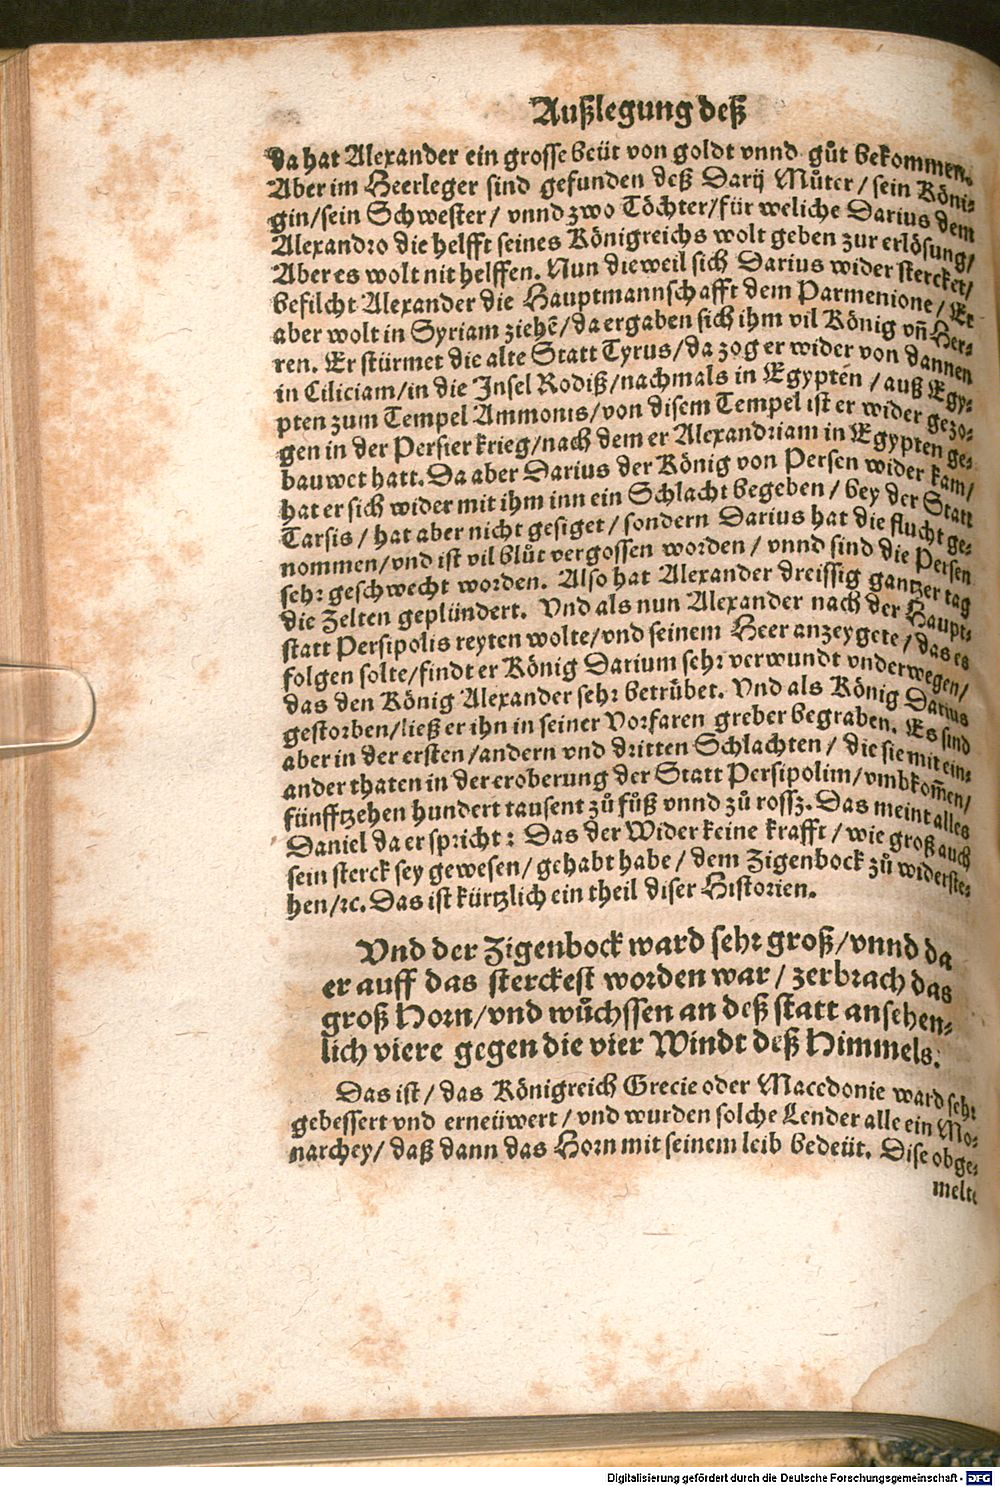 Außlegung deß
da hat Alexander ein grosse beüt von goldt vnnd gůt bekommen.
Aber im Heerleger sind gefunden deß Darij Můter / sein Köni-
gin/sein Schwester / vnnd zwo Töchter/für weliche Darius dem
Alexandro die helfft seines Königreichs wolt geben zur erlösung/
Aber es wolt nit helffen. Nun dieweil sich Darius wider stercket/
befilcht Alexander die Hauptmannschafft dem Parmenione / Er
aber wolt in Syriam ziehẽ/da ergaben sich ihm vil König vñ Her-
ren. Er stürmet die alte Statt Tyrus/da zog er wider von dannen
in Ciliciam/in die Insel Rodiß/nachmals in Egypten / auß Egy-
pten zum Tempel Ammonis/von disem Tempel ist er wider gezo-
gen in der Persier krieg/nach dem er Alexandriam in Egypten ge-
bauwet hatt. Da aber Darius der König von Persen wider kam/
hat er sich wider mit ihm inn ein Schlacht begeben / bey der Statt
Tarsis / hat aber nicht gesiget / sondern Darius hat die flucht ge-
nommen/vnd ist vil blůt vergossen worden / vnnd sind die Persen
sehr geschwecht worden. Also hat Alexander dreissig gantzer tag
die Zelten geplündert. Vnd als nun Alexander nach der Haupt-
statt Persipolis reyten wolte/vnd seinem Heer anzeygete / das es
folgen solte/findt er König Darium sehr verwundt vnderwegen/
das den König Alexander sehr betrübet. Vnd als König Darius
gestorben/ließ er ihn in seiner Vorfaren greber begraben. Es sind
aber in der ersten /andern vnd dritten Schlachten / die sie mit ein-
ander thaten in der eroberung der Statt Persipolim/vmbkom̃en/
fünfftzehen hundert tausent zů fůß vnnd zů rossz. Das meint alles
Daniel da er spricht: Das der Wider keine krafft / wie groß auch
sein sterck sey gewesen/ gehabt habe / dem Zigenbock zů widerste-
hen/ꝛc. Das ist kürtzlich ein theil diser Historien.
Vnd der Zigenbock ward sehr groß/vnnd da
er auff das sterckest worden war / zerbrach das
groß Horn/vnd wůchssen an deß statt ansehen-
lich viere gegen die vier Windt deß Himmels.
Das ist / das Königreich Grecie oder Macedonie ward sehr
gebessert vnd erneüwert / vnd wurden solche Lender alle ein Mo-
narchey/ daß dann das Horn mit seinem leib bedeüt. Dise obge-
melte
Digitalisierung gefördert durch die Deutsche Forschungsgemeinschaft - DFG